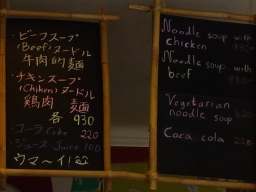 ・ビーフスープ
(Beef) ヌードル
牛肉的麺
・チキンスープ
(Chiken) ヌードル
鶏肉 麺
各 930
コーラ Coke 220
ジュース Juice 100
ウマ〜イ!
Noodle soup with
chicken 930
Noodle soup with
beef
Vegetarian
noodle soup
Coca cola 220